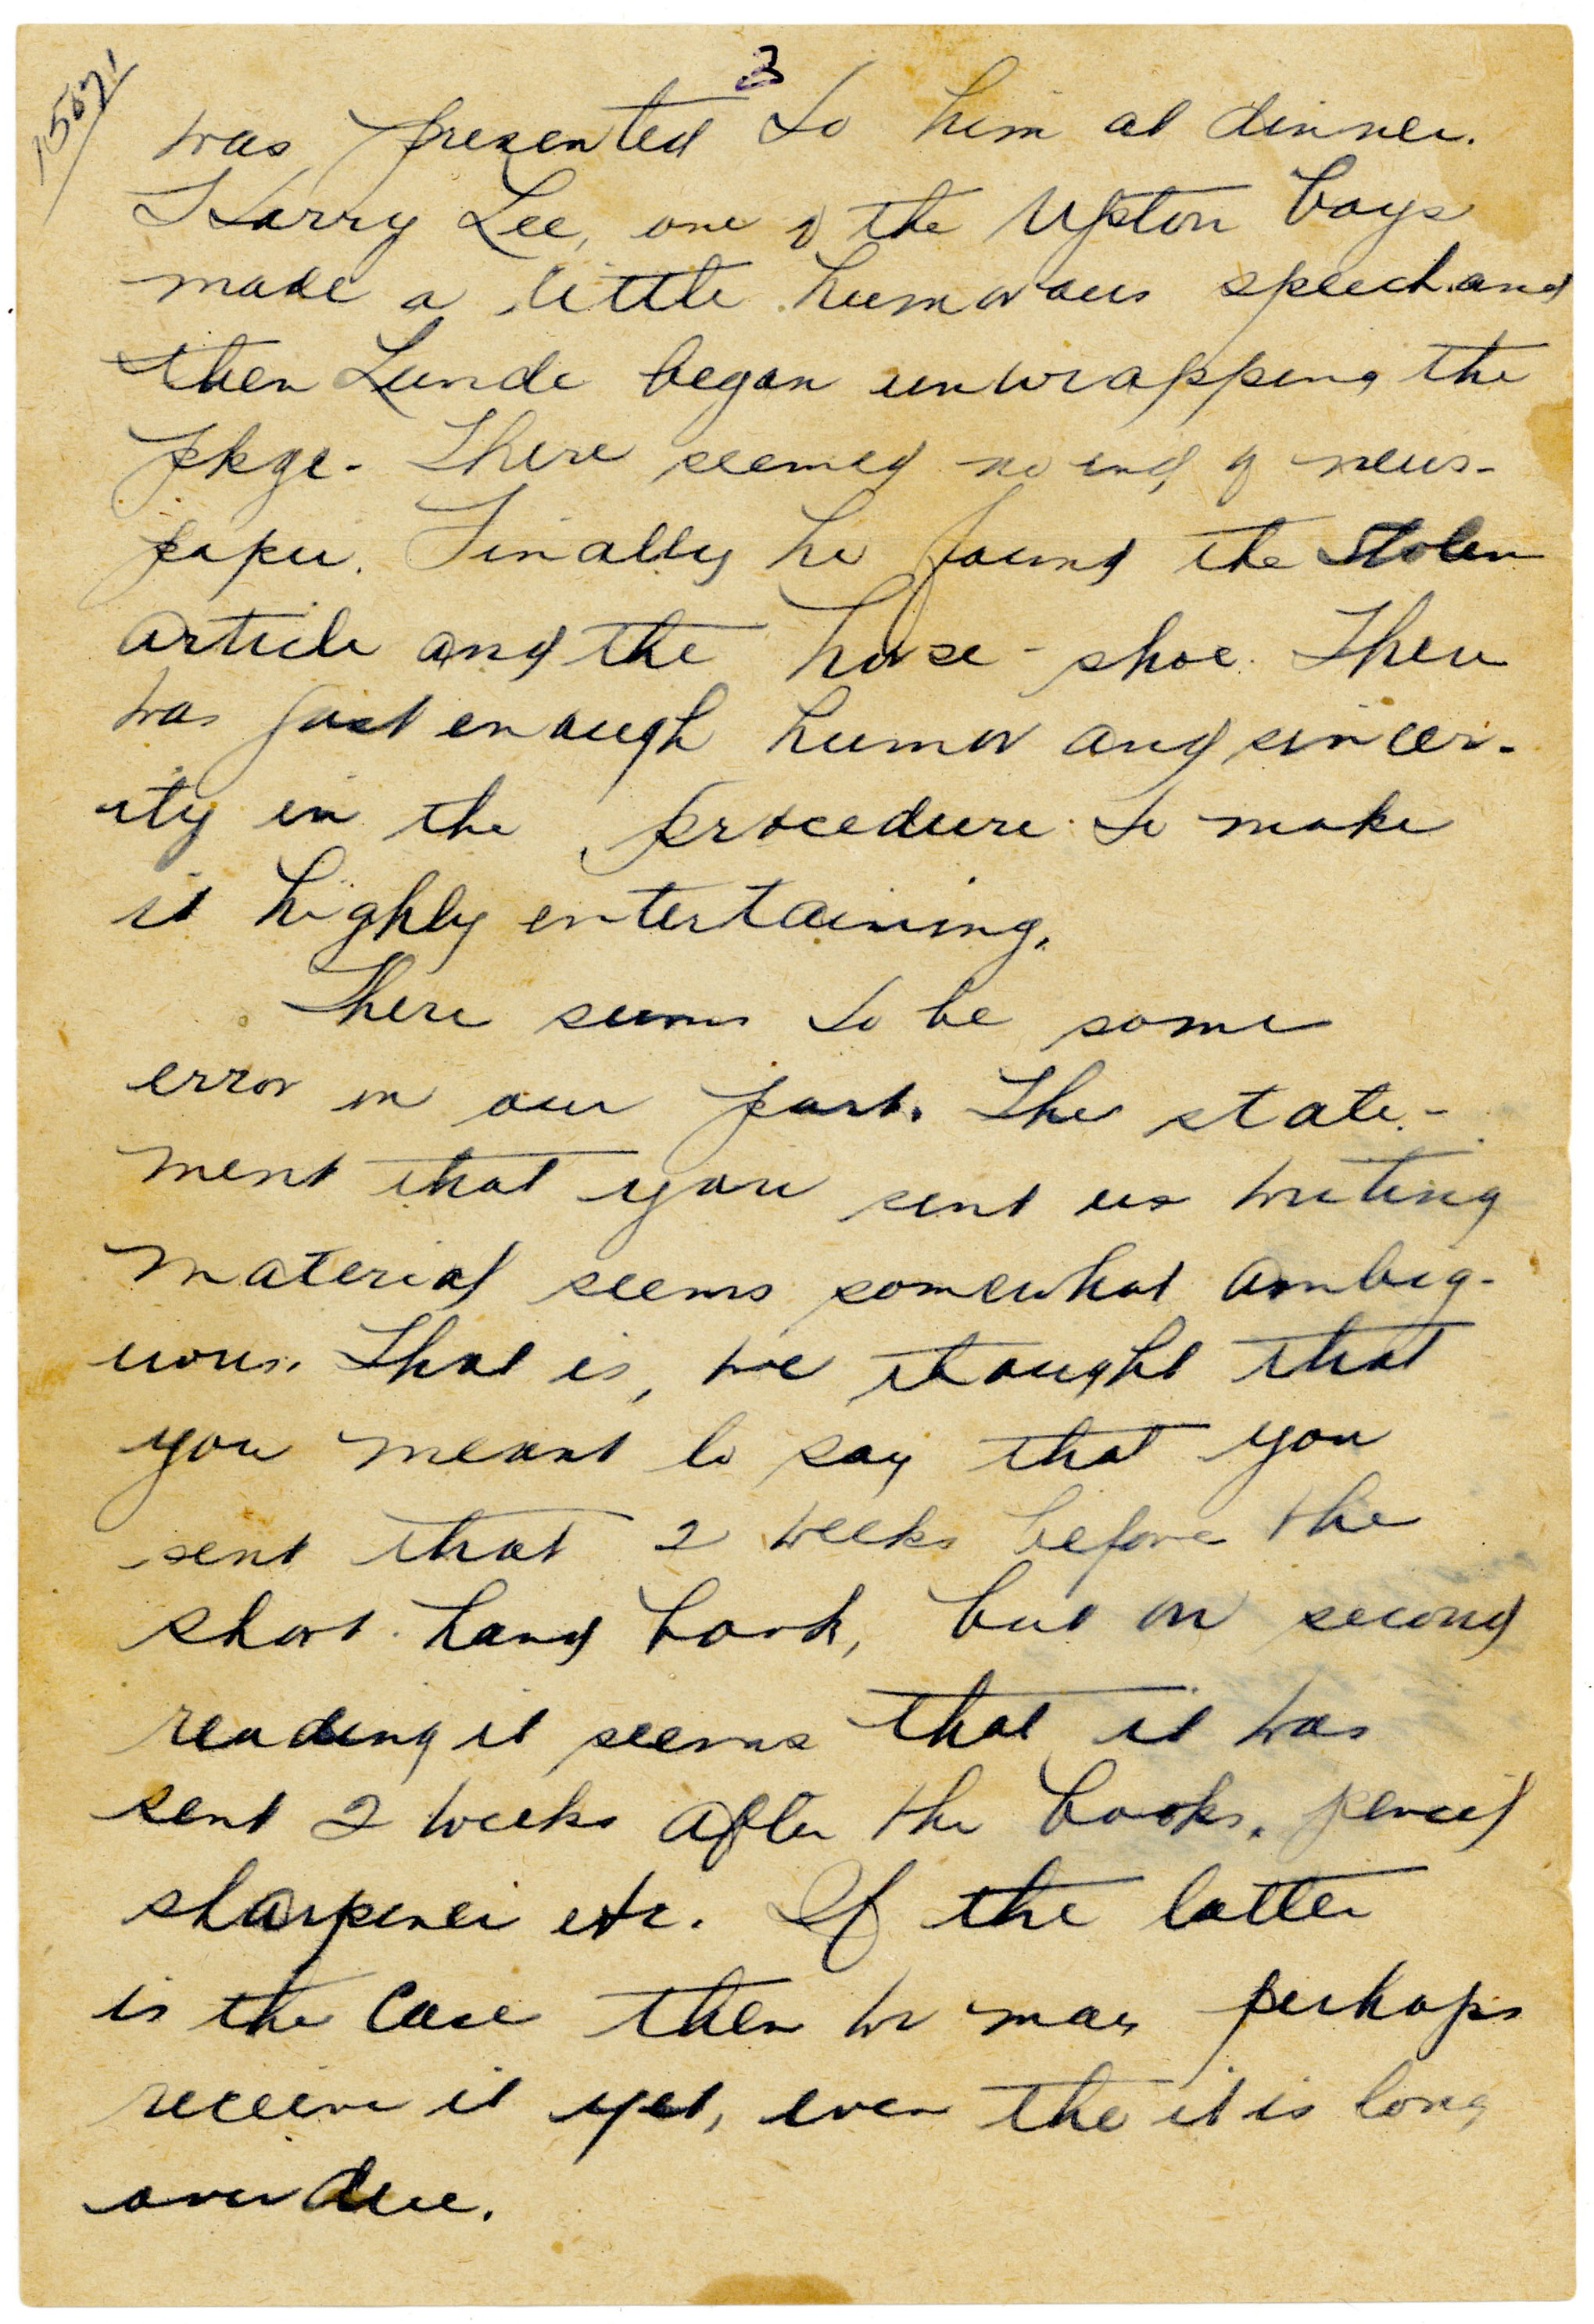 3
was presented to him at dinner.
Harry Lee, one of the Upton boys
made a little humorous speech and
then Lunde began unwrapping the
pkge - There seemed no end of news-
paper. Finally he found the stolen
article and the horse-shoe. There
was just enough humor and sincer-
ity in the procedure to make
it highly entertaining.
There seems to be some
error on our part. The state-
ment that you sent us writing
material seems somewhat ambig-
uous. That is, we thought that
you meant to say that you
sent that 2 weeks before the
short-hand book, but on second
reading it seems that it was
sent 2 weeks after the books, pencil
sharpener etc. If the latter
is the case then we may perhaps
receive it yet, even tho it is long
over due.